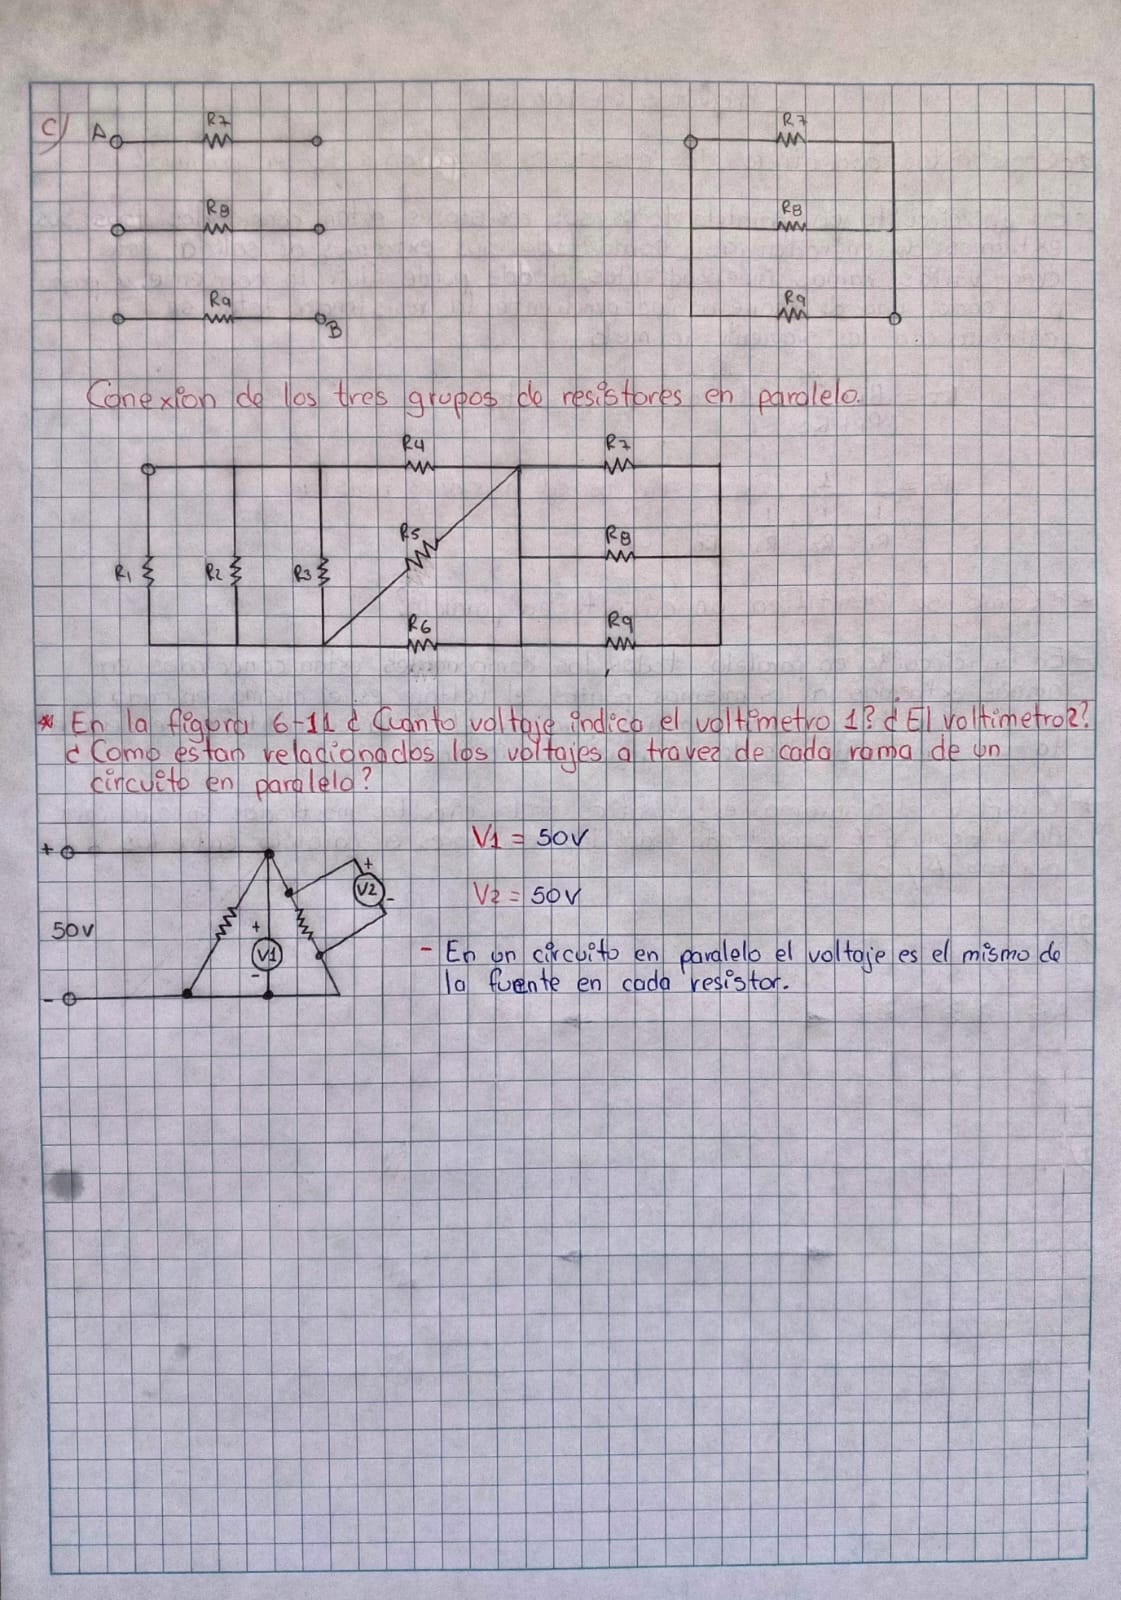 c) A R7 R7
R8 R8
R9 B R9
Conexion de los tres grupos de resistores en paralelo.
R4 R7
R5 R8
R1 R2 R3
R6 R9
* En la figura 6-11 ¿ Cuanto voltaje indica el voltimetro 1? ¿ El voltimetro2?
¿ Como estan relacionados los voltajes a travez de cada rama de un
circuito en paralelo?
+ V1 = 50v
+ V2 -
V2 = 50v
50v + V1 -
- En un circuito en paralelo el voltaje es el mismo de
la fuente en cada resistor.
-